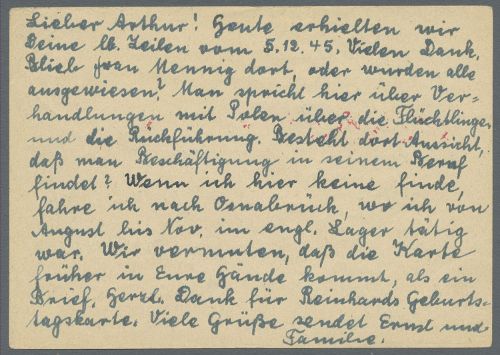 Lieber Arthur! Heute erhielten wir
Deine lb. Zeilen vom 5.12.45. Vielen Dank.
Blieb Frau Mennig dort, oder wurden alle
ausgewiesen? Man spricht hier über Ver-
handlungen mit Polen über die Flüchtlinge
und die Rückführung. Besteht dort Aussicht,
daß man Beschäftigung in seinem Beruf
findet? Wenn ich hier keine finde,
fahre ich nach Osnabrück, wo ich von
August bis Nov. im engl. Lager tätig
war. Wir vermuten, daß die Karte
früher in Eure Hände kommt, als ein
Brief. Herzl. Dank für Reinhards Geburts-
tagskarte. Viele Grüße sendet Ernst und
Familie.